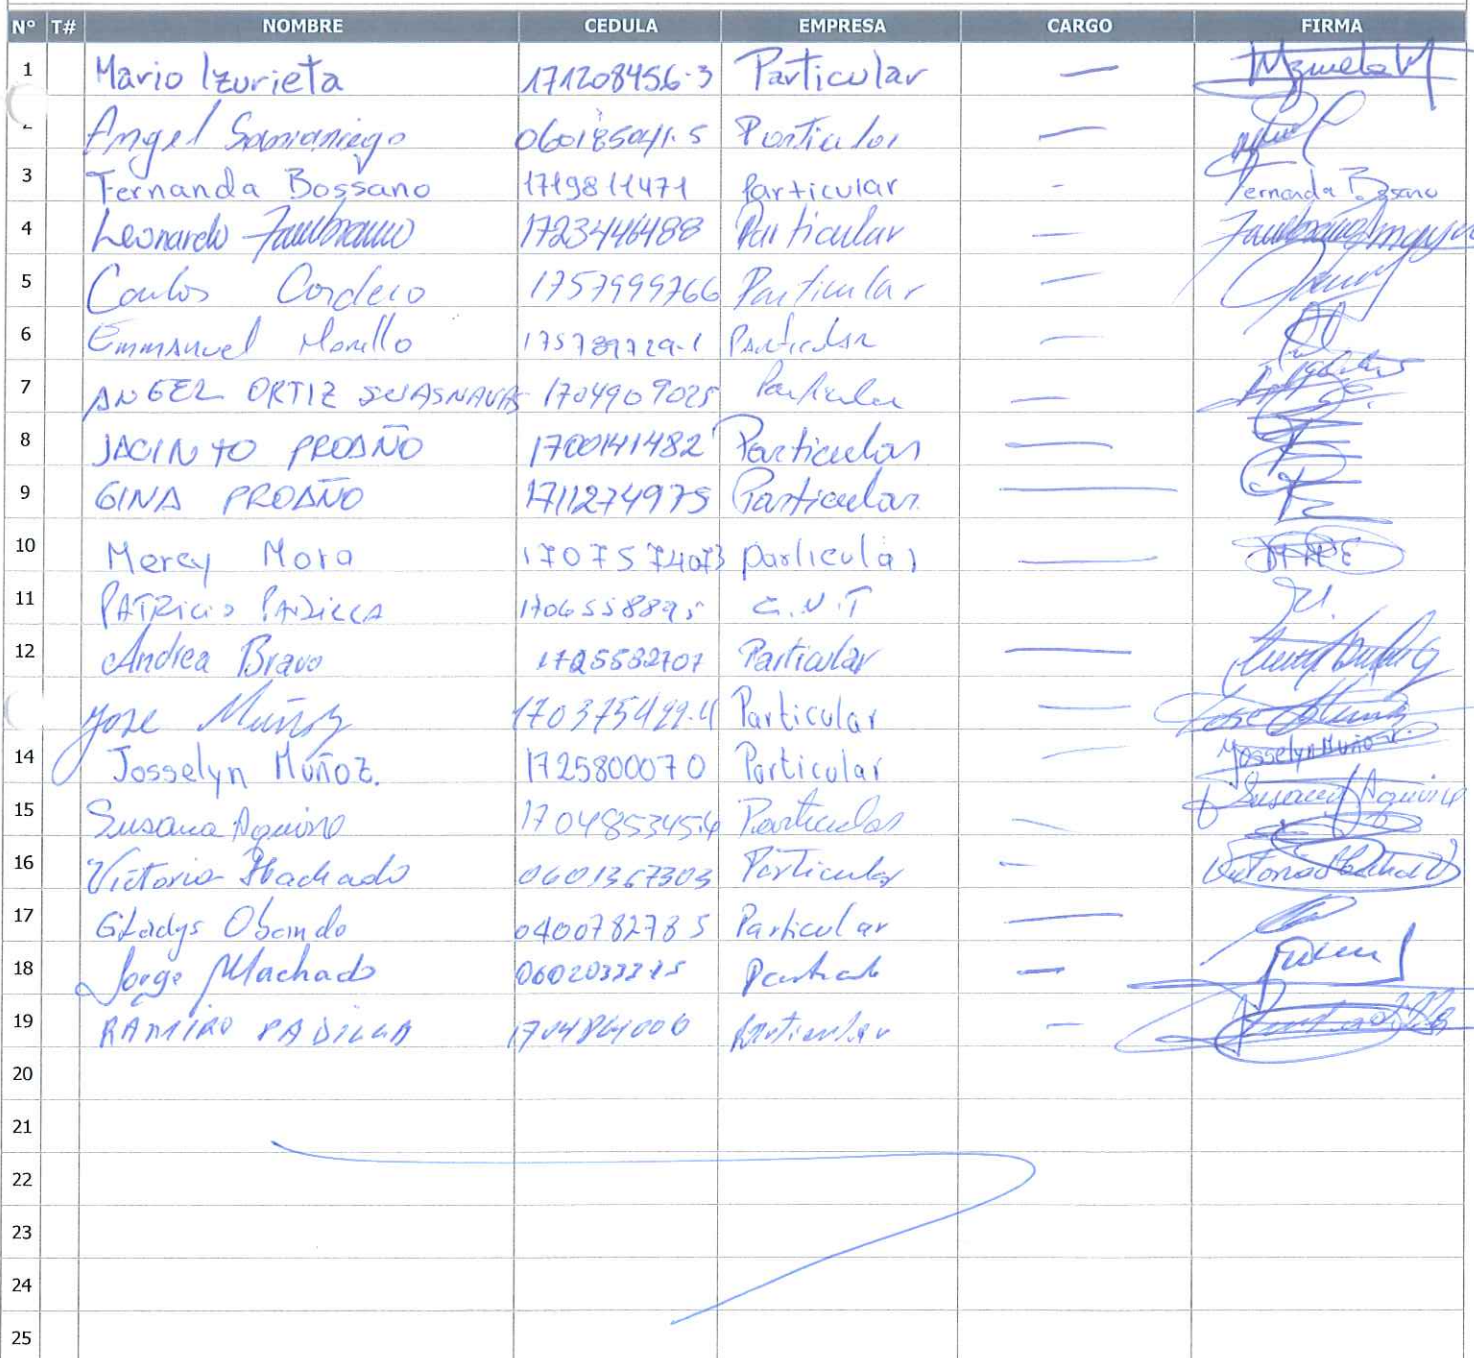 N° T# NOMBRE CEDULA EMPRESA CARGO FIRMA
1 Mario Izurieta 171208456-3 Particular —
Angel Samaniego 060185041-5 Particular —
3 Fernanda Bossano 1719811471 Particular - Fernanda Bossano
4 Leonardo Zambrano 1723446488 Particular —
5 Carlos Cordero 1757999766 Particular —
6 Emmanuel Morillo Particular —
7 ANGEL ORTIZ SUASNAVAS 1704909025 Particular —
8 JACINTO PROAÑO 1700141482 Particular —
9 GINA PROAÑO 1711274975 Particular —
10 Mercy Mora Particular —
11 PATRICIO PADILLA 1706558895
12 Andrea Bravo 1725582707 Particular —
Jose Muñoz 170375499-4 Particular —
14 Josselyn Muñoz. 1725800070 Particular — Josselyn Muñoz
15 Susana Aquino Particular — Susana Aquino
16 Victoria Machado 0601367303 Particular —
17 Gladys Obando 0400782785 Particular —
18 Jorge Machado —
19 RAMIRO PADILLA Particular —
20
21
22
23
24
25